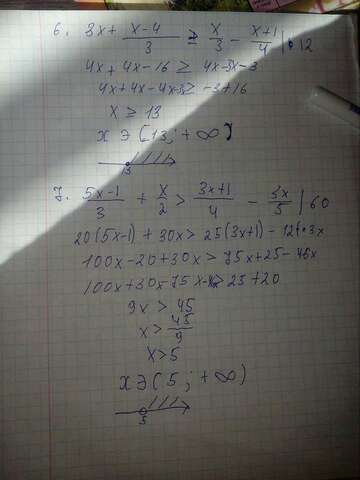 6. 3x + x-4/3 ≥ x/3 - x+1/4 | · 12
4x + 4x - 16 ≥ 4x - 3x - 3
4x + 4x - 4x + 3x ≥ -3 + 16
x ≥ 13
x ∋ [13; +∞)
13
7. 5x-1/3 + x/2 > 3x+1/4 - 3x/5 | 60
20(5x-1) + 30x > 25(3x+1) - 12 · 3x
100x - 20 + 30x > 75x + 25 - 46x
100x + 30x - 75x > 25 + 20
9x > 45
x > 45/9
x > 5
x ∋ (5; +∞)
5